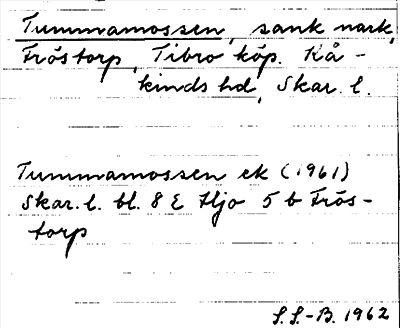 Tummamossen, sank mark,
Fröstorp, Tibro köp. Kå-
kinds hd, Skar. l.
Tummamossen ek (1961)
Skar. l. bl. 8 E Hjo 5 b Frös-
torp
S.S.-B. 1962